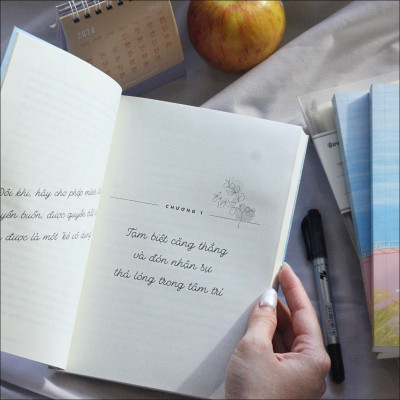 2024
Đôi khi, hãy cho phép mình
buồn, được quyền
được là một "kẻ vô dụng
CHƯƠNG 1
Tạm biệt căng thẳng
và đón nhận sự
thả lỏng trong tâm trí